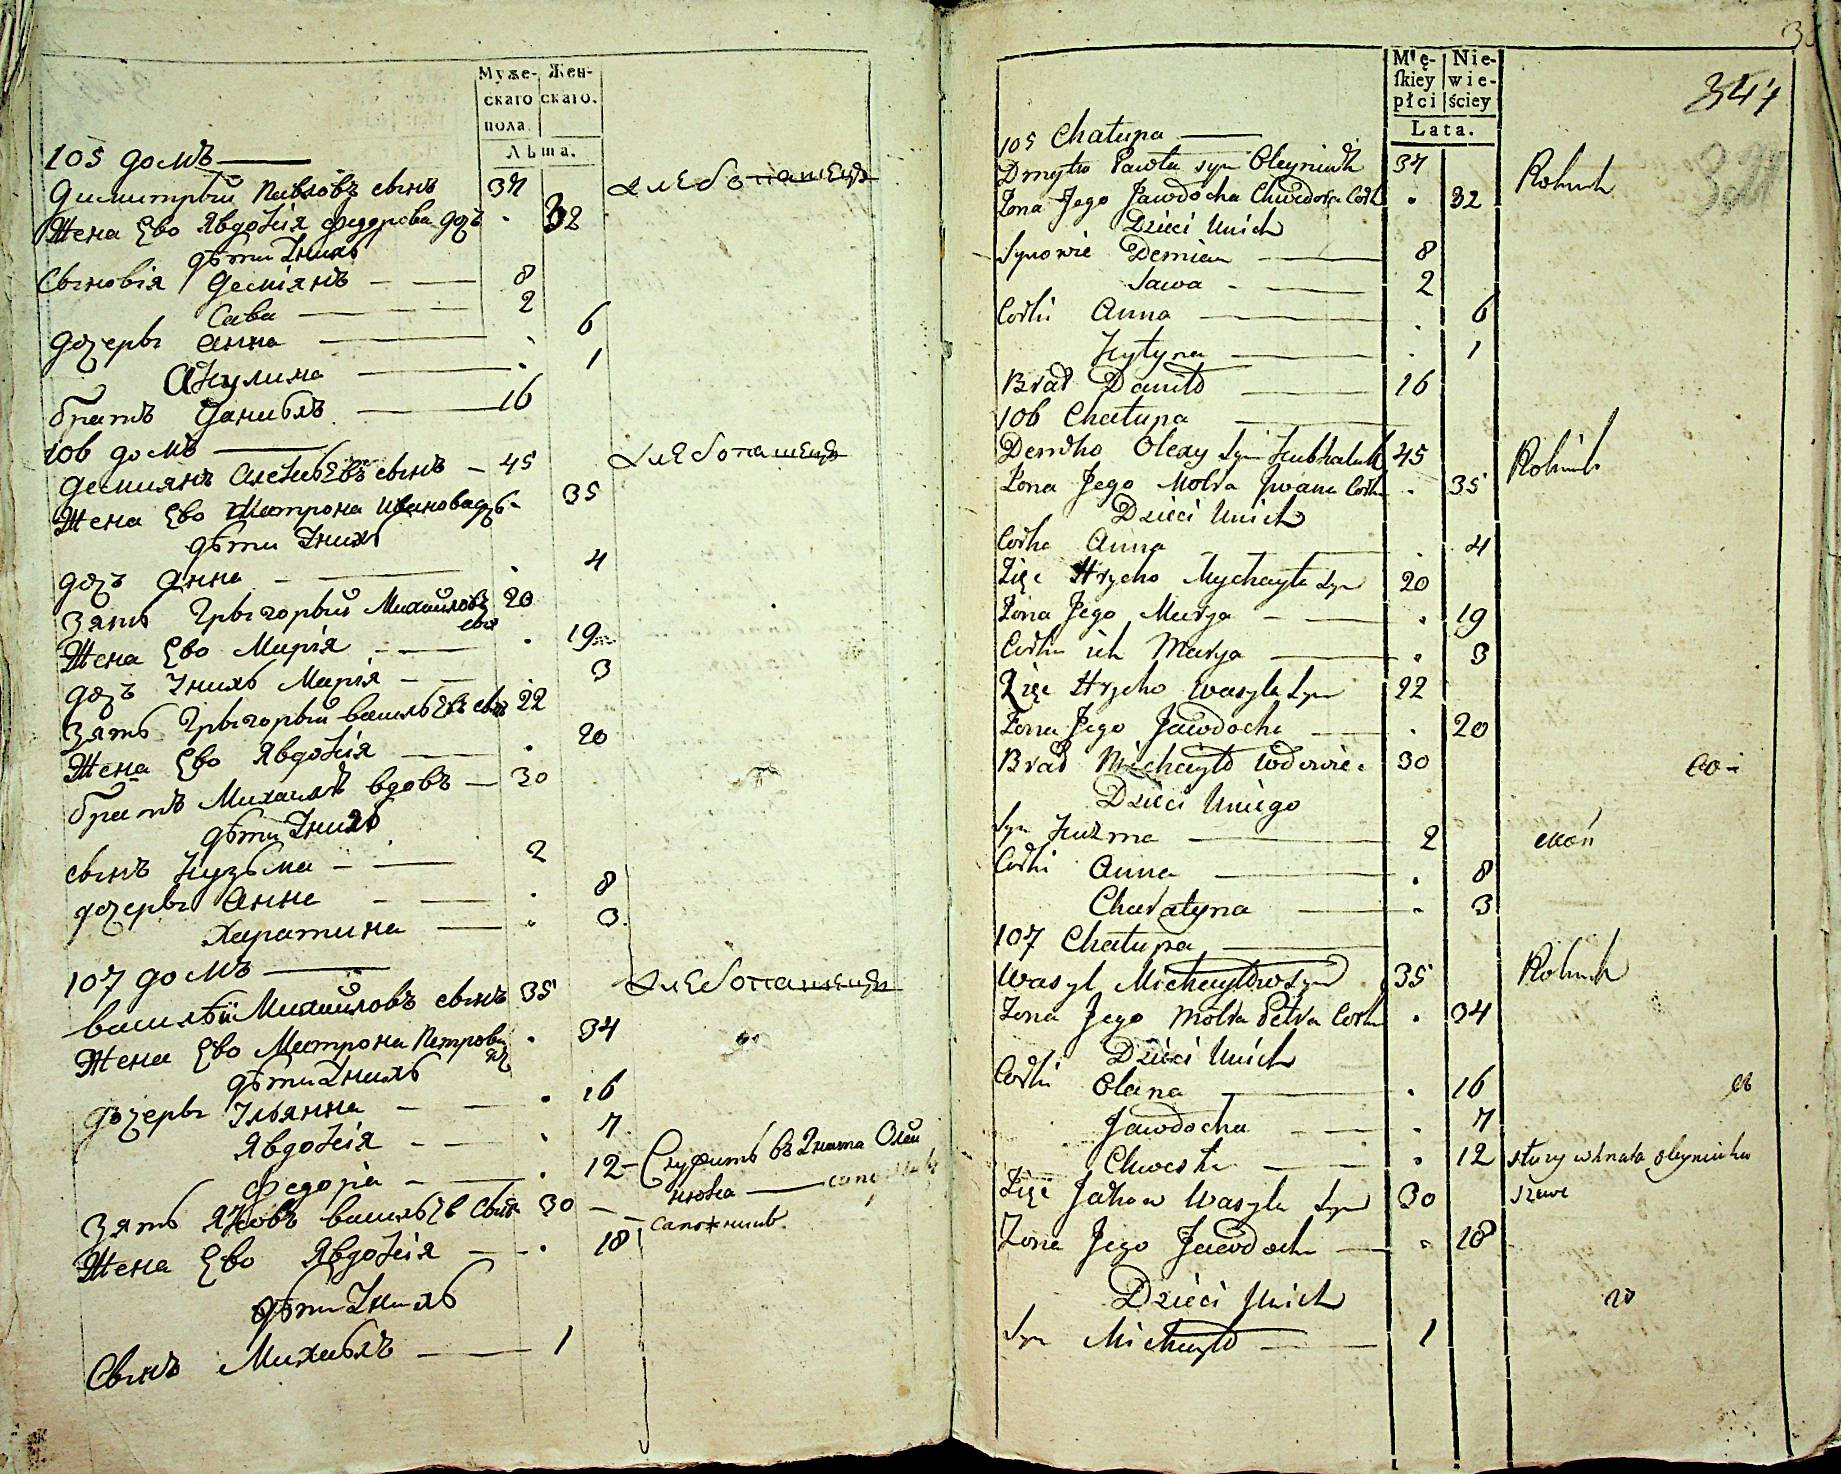 Муже- Жен-
скаго скаго.
пола.
Лѣта.
105 домъ
Димитрый Павловъ сынъ 37 хлебопашецъ
Жена Ево Явдокія Федорова доч . 32
дѣти Ихъ
Сыновія Деміянъ 8
Сава 2
дочеры Анна . 6
Акулина . 1
братъ Данилъ 16
106 домъ
Демиянъ Алексѣевъ сынъ 45 хлебопашецъ
Жена Ево Матрона Иванова доч . 35
дѣти Ихъ
дочъ Анна . 4
Зять Грыгорый Михайловъ сынъ 20
Жена Ево Марія . 19
дочъ Ихъ Марія 3
Зять Грыгорый василѣвъ сынъ 22
Жена Ево Явдокія . 20
братъ Михаилъ вдовъ 30
дѣти
сынъ Кузьма 2
дочеры Анна . 8
Харатина . 3
107 домъ
василѣй Михайловъ сынъ 35 хлебопашецъ
Жена Ево Матрона Петрова доч . 34
дѣти
дочеры Ульянна . 16
Явдокія . 7
Федора . 12 Служитъ
Зять Яковъ василѣв сынъ 30 сапожникъ
Жена Ево Явдокія . 18
дѣти
Сынъ Михаилъ 1
Mę- Nie-
ſkiey wie-
płci ściey
Lata.
344
105 Chałupa
Dmytro Pawła syn Oleyniuk 37 Rolnik
Żona Jego Jawdocha Chwedora Corka . 32
Dzieci Unich
Synowie Demian 8
Sawa 2
Corki Anna . 6
Kylyna . 1
Brat Daniło 16
106 Chałupa
Demko Olexy Syn 45 Rolnik
Żona Jego Motra Jwana Corka . 35
Dzieci Unich
Corka Anna . 4
Zięć Hrycko Mychayła Syn 20
Żona Jego Marya . 19
Corka ich Marya . 3
Zięć Hrycko Wasyla Syn 22
Żona Jego Jawdocha . 20
Brat Michayło Wdowiec 30
Dzieci Uniego
Syn Kuzma 2
Corki Anna . 8
Charatyna . 3
107 Chałupa
Wasyl Michayłow Syn 35 Rolnik
Żona Jego Motra Petra Corka . 34
Dzieci Unich
Corki Olana . 16
Jawdocha . 7
Chweska . 12 służy u Knata Oleyniuka
Zięć Jakow Wasyla Syn 30 szewc
Żona Jego Jawdocha . 18
Dzieci Unich
Syn Michayło 1